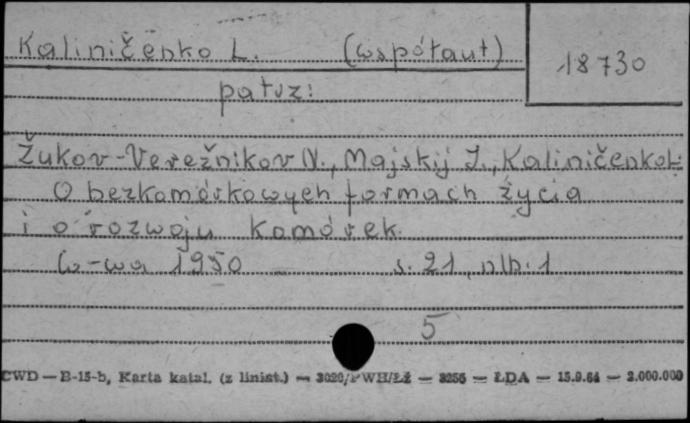 Kaliničenko L. (współaut)
18730
patrz:
Žukov-Verežnikov N., Majskij J., Kaliničenko L.
O bezkomórkowych formach życia
i o rozwoju komórek.
W-wa 1950 s. 21, nlb. 1
5
CWD — B-15-b, Karta katal. (z linist.) — 3020/PWH/Łż — 3256 — ŁDA — 15.9.64 — 2.000.000